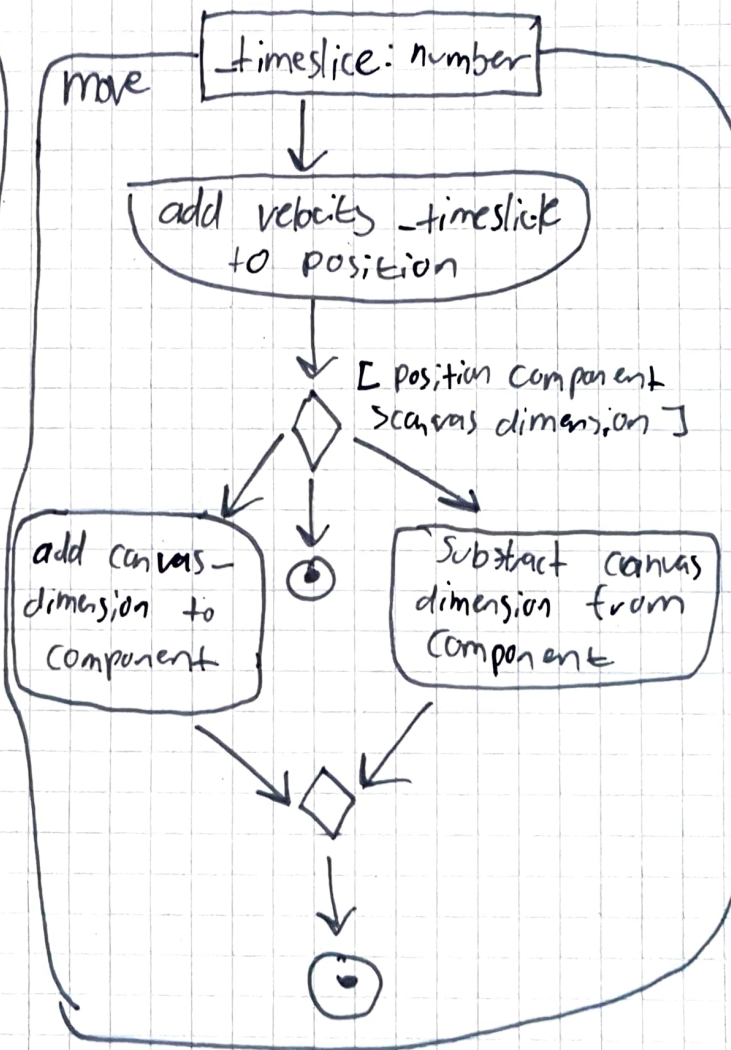 _timeslice: number
move
add velocity _timeslick
to position
[ position component
>canvas dimension ]
add canvas-
dimension to
component
Substract canvas
dimension from
component